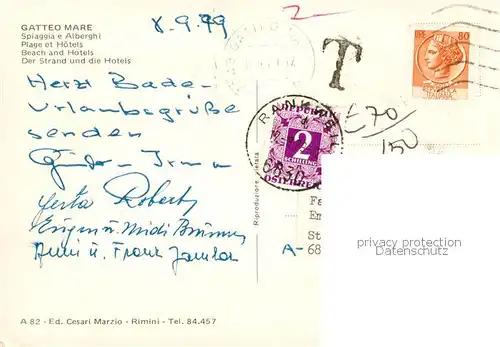 GATTEO MARE
Spiaggia e Alberghi
Plage et Hôtels
Beach and Hotels
Der Strand und die Hotels
8.9.79
Herzl Bade-
Urlaubsgrüße
senden
Irma
Herta Robert
Eugen u. Midi
Anni u. Franz
A 82 - Ed. Cesari Marzio - Rimini - Tel. 84.457
Riproduzione vietata
T
LIRE 80
ITALIANA
70
150
RANKWEIL
6830
2
SCHILLING
ÖSTERREICH
Fa
Em
St
A- 68
privacy protection
Datenschutz